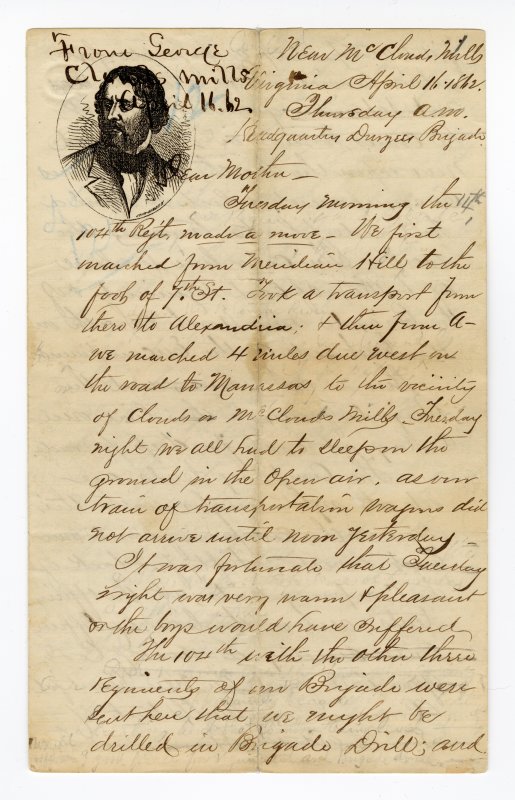 From George
Clouds Mills
April 16.62
Near McClouds Mills
Virginia April 16. 1862.
Thursday a.m.
Headquarters Duryees Brigade
Dear Mother _
Tuesday morning the 14th
104th Regt. made a move _ We first
marched from Meridian Hill, to the
foot of 7th St. Took a transport from
there to Alexandria; & then from A-
we marched 4 miles due west on
the road to Manassas to the vicinity
of Clouds or McClouds Mills. Tuesday
night we all had to sleep on the
ground in the open air, as our
train of transportation wagons did
not arrive until noon yesterday _
It was fortunate that Tuesday
night was very warm & pleasant
or the boys would have suffered
The 104th with the other three
regiments of our Brigade were
sent here that we might be
drilled in Brigade Drill; and